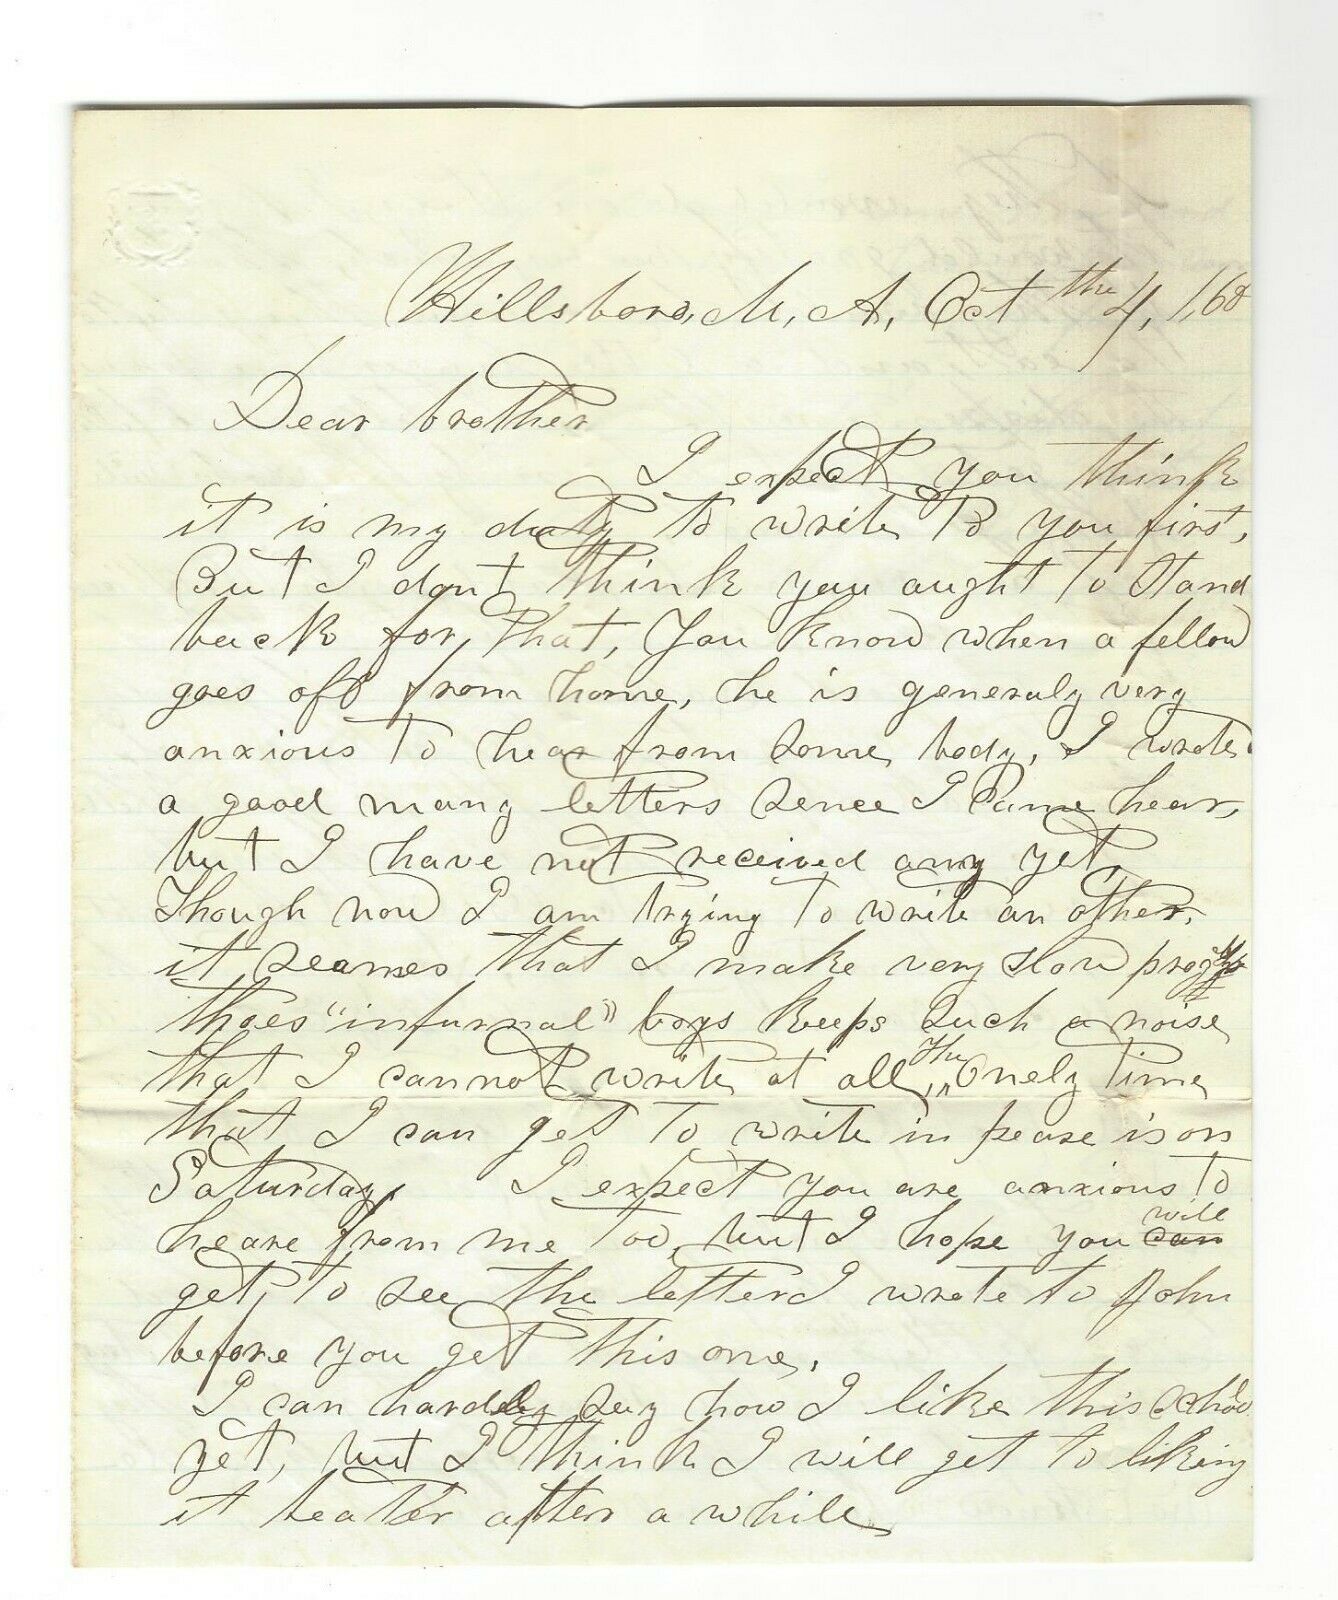 Hillsboro, M, A, Oct the 4, 1,60
Dear brother
I expect you think
it is my duty to write to you first,
But I dont think you aught to stand
back for that, You know when a fellow
goes off from home, he is generaly very
anxious to hear from some body, I wrote
a good many letters sence I Came hear,
but I have not received any yet,
Though now I am trying to write an other,
it seames that I make very slow prog
thoes "infurnal" boys keeps such a noise
that I cannot write at all, the Onely time
that I can get to write in pease is on
Saturday, I expect you are anxious to
heare from me too, but I hope you can will
get to see the letter I wrote to John
before you get this one,
I can hardly say how I like this schoo
yet, but I think I will get to liking
it beater after a while